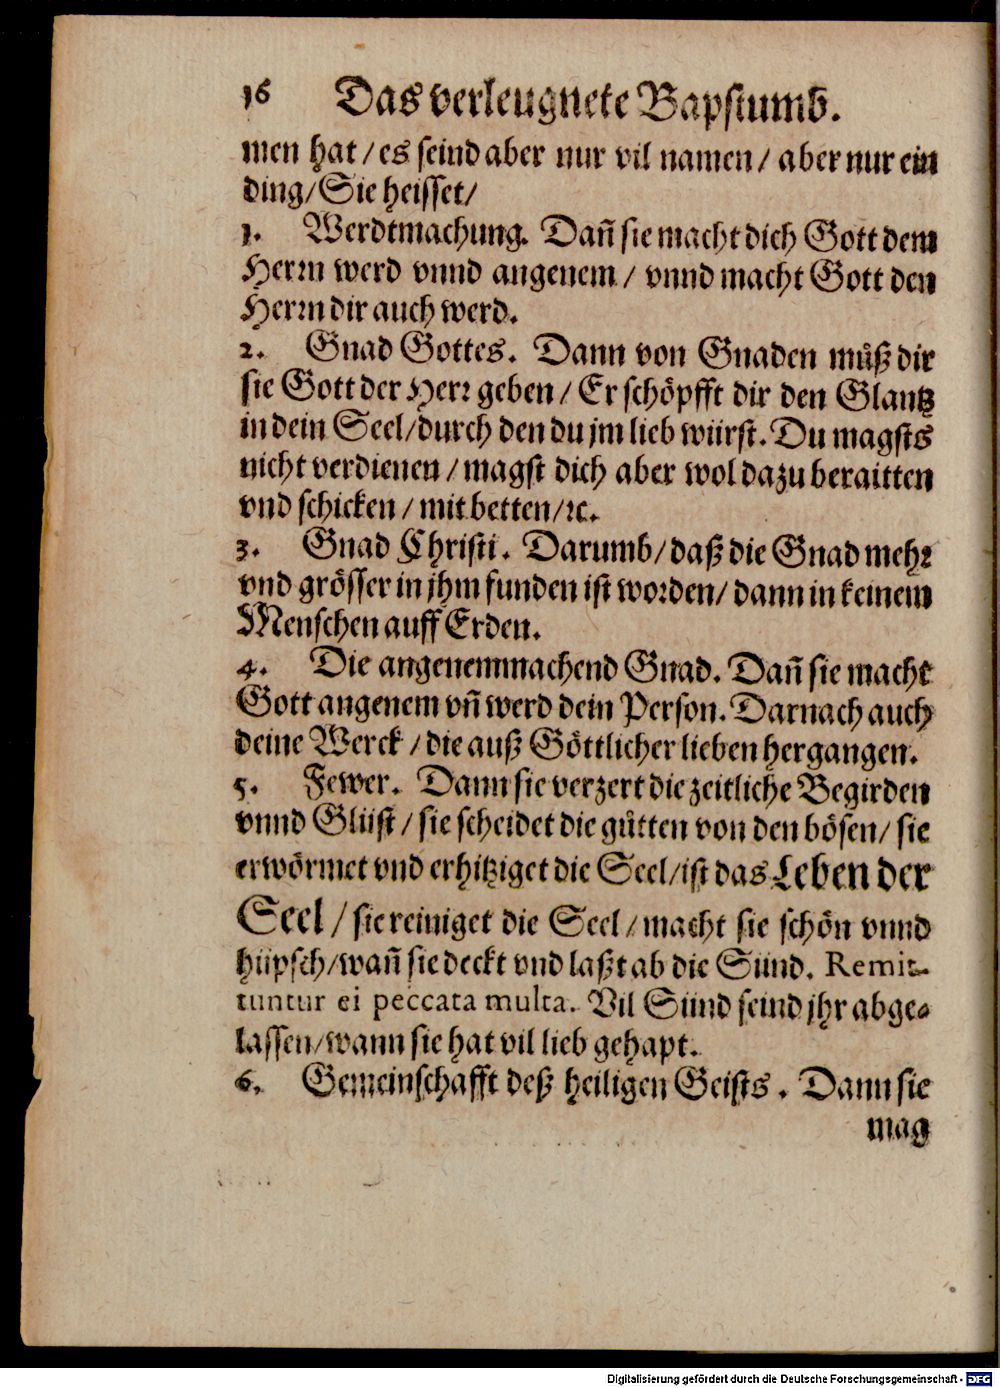 16 Das verleugnete Bapstumb.
men hat / es seind aber nur vil namen / aber nur ein
ding / Sie heisset /
1. Werdtmachung. Dañ sie macht dich Gott dem
Herrn werd vnnd angenem / vnnd macht Gott den
Herrn dir auch werd.
2. Gnad Gottes. Dann von Gnaden muͦß dir
sie Gott der Herr geben / Er schöpfft dir den Glantz
in dein Seel / durch den du jm lieb würst. Du magsts
nicht verdienen / magst dich aber wol dazu beraitten
vnd schicken / mit betten / ꝛc.
3. Gnad Christi. Darumb / daß die Gnad mehr
vnd grösser in jhm funden ist worden / dann in keinem
Menschen auff Erden.
4. Die angenemmachend Gnad. Dañ sie macht
Gott angenem vñ werd dein Person. Darnach auch
deine Werck / die auß Göttlicher lieben hergangen.
5. Fewer. Dann sie verzert die zeitliche Begirden
vnnd Glüst / sie scheidet die guͦtten von den bösen / sie
erwörmet vnd erhitziget die Seel / ist das Leben der
Seel / sie reiniget die Seel / macht sie schön vnnd
hüpsch / wañ sie deckt vnd laßt ab die Sünd. Remit-
tuntur ei peccata multa. Vil Sünd seind jhr abge-
lassen / wann sie hat vil lieb gehapt.
6. Gemeinschafft deß heiligen Geists. Dann sie
mag
Digitalisierung gefördert durch die Deutsche Forschungsgemeinschaft - DFG